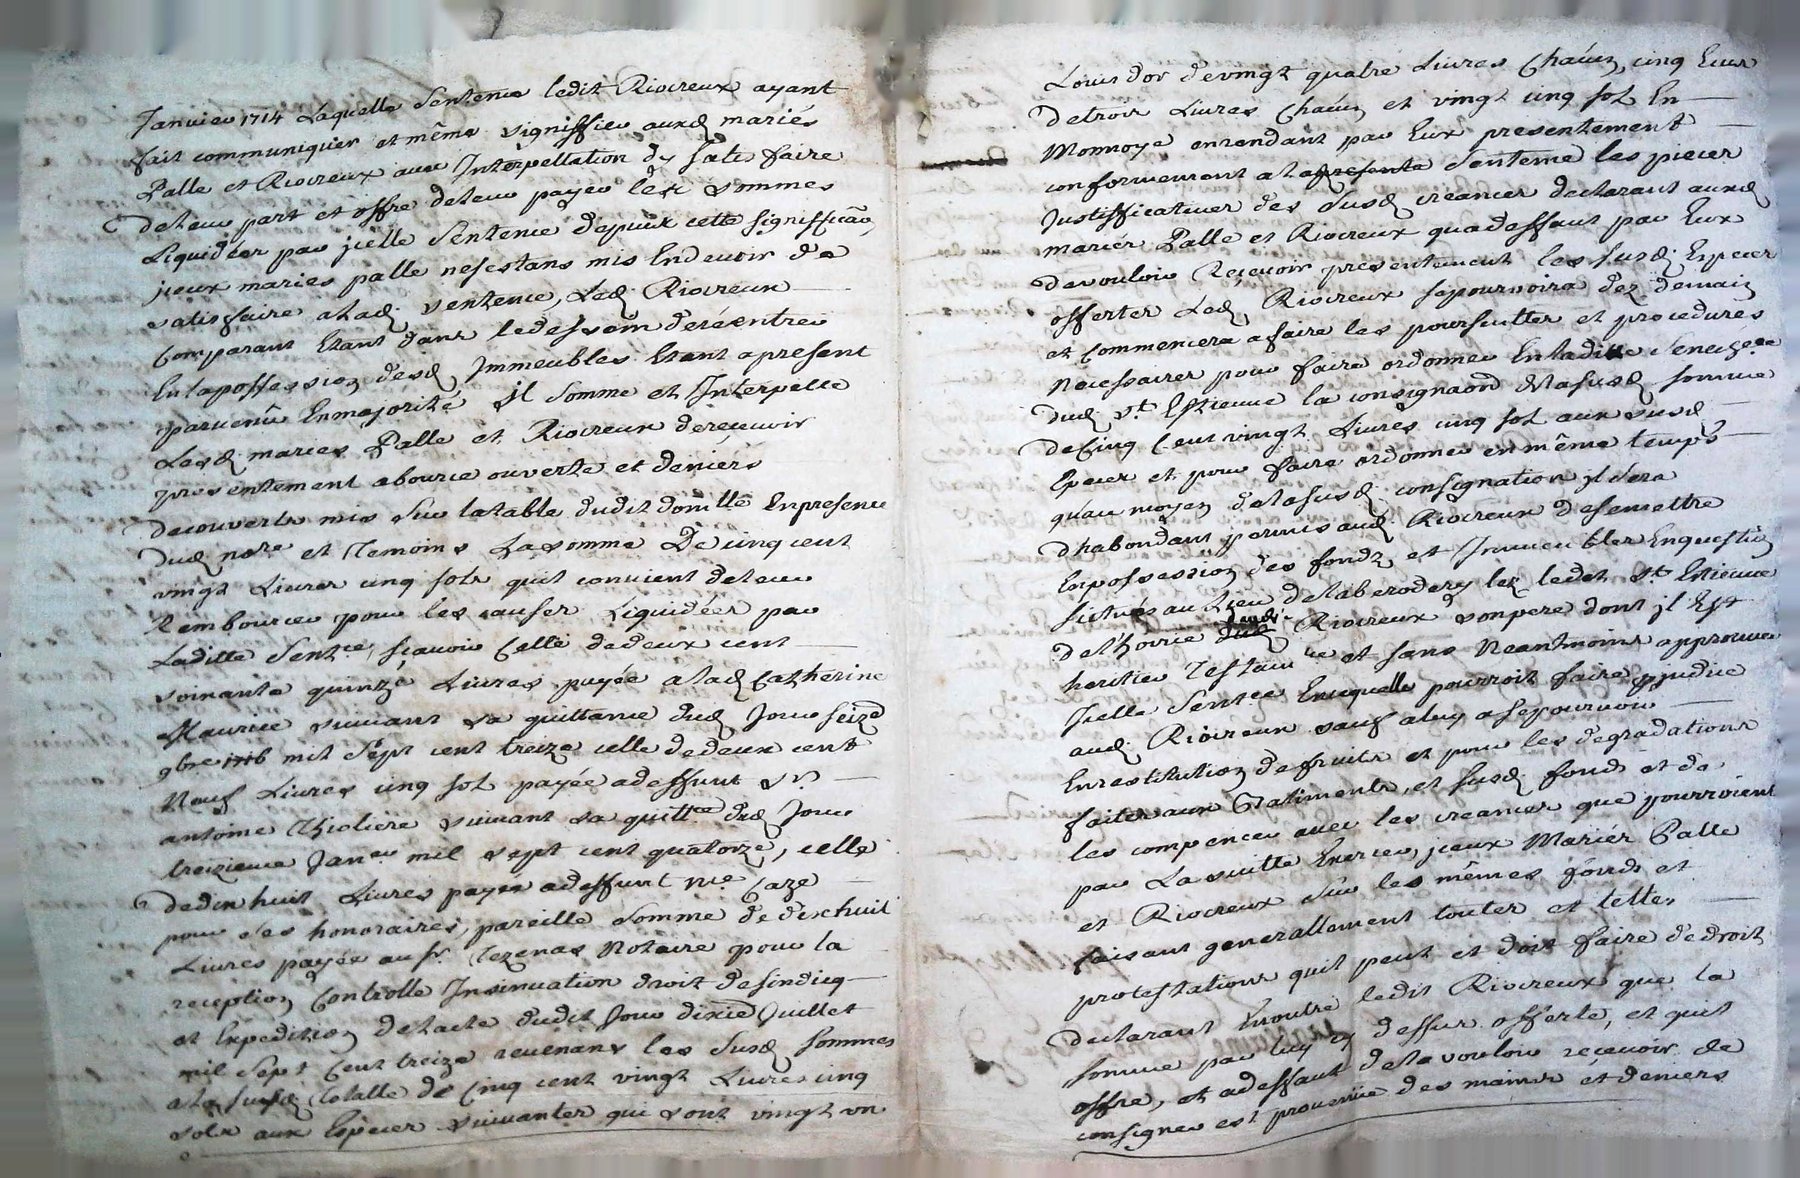 Janvier 1714 Laquelle Sentence ledit Riocreux ayant
fait communiquer et même signiffier auxd mariés
Palle et Riocreux avec Interpellation dy satisfaire
deleur part et offre deleur payer les sommes
Liquidées par jcelle Sentence depuis cette signifficãon
jceux maries palle nesestans mis Endevoir de
satisfaire alad. sentence, Led. Riocreux
Comparant Etant dans ledessein derèentrer
Enlapossession desd Immeubles Etant apresent
parvenu Enmajorité jl somme et Interpelle
Lesd maries Palle et Riocreux derecevoir
presentement abource ouverte et deniers
decouverts mis sur latable dudit domlle Enpresence
dud nore et Temoins Lasomme De cinq cent
vingt Livres cinq sols quil convient deleur
Rembourcer pour les causes Liquidées par
Laditte Sentce, sçavoir Celle dedeux cent
soixante quinze Livres payée alad Catherine
Maurice suivant sa quittance dud Jour seize
9bre mil sept cent treize celle dedeux cent
Neuf Livres cinq sol payée adeffunt sr
antoine Thioliere suivant sa quittce dud Jour
treizieme Janer mil sept cent quatorze, celle
dedix huit Livres payée adeffunt Me Caze
pour ses honoraires, pareille somme de dixhuit
Livres payée au sr Tezenas Notaire pour la
reception Controlle Insinuation droit desindicq
et Expedition delacte dudit Jour dixie Juillet
mil sept Cent treize revenans les susd sommes
ala susd totalle de Cinq cent vingt Livres cinq
sols aux Especes suivantes qui sont vingt un
Louis dor devingt quatre Livres Chacun, cinq Ecus
detrois Livres Chacun et vingt cinq sol En
Monnoye enrendant par Eux presentement
conformement ala presente Sentence les pieces
Justifficatives des susd creances declarant auxd
mariés Palle et Riocreux quadeffaut par Eux
devouloir Recevoir presentement les susd Especes
offertes Led, Riocreux sepourvoira dez demain
et Commencera afaire les poursuittes et procedures
Necessaires pour faire ordonner Enladitte Senechée
dud st Estienne la consignaõn delasusd somme
deCinq Cent vingt Livres cinq sol aux susd
Especes et pour faire ordonner enmême temps
quau moyen delasusd. consignation jl sera
dhabondant permis aud. Riocreux desemettre
Enpossession des fonds et Immeubles Enquestion
sictués au Lieu delaberodery lez ledit st Estienne
delhoirie dud Riocreux sonpere dont jl Est
heritier Testamre et sans Neantmoins approuver
Jcelle Sentce Encequelle pourroit faire prjudice
aud. Riocreux sauf aluy asepourvoir
Enrestitution defruits et pour les degradations
faites aux Batiments, et susd fonds et de
les compencer avec les creances que pourroient
par La suitte Exercer, jceux Mariés Palle
et Riocreux sur les mêmes fonds et
faisant generallement toutes et telles
protestations quil peut et doit faire dedroit
declarant Enoutre ledit Riocreux que la
somme par luy cy dessus offerte, et quil
offre, et adeffaut dela vouloir recevoir de
consigner est provenüe des mains et deniers